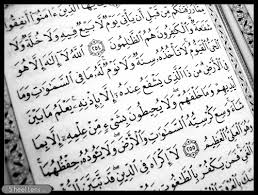 ءَامَنُوٓا۟ أَنفِقُوا۟
رَزَقْنَٰكُم مِّن قَبْلِ أَن يَأْتِىَ يَوْمٌ لَّا بَيْعٌ فِيهِ وَلَا خُلَّةٌ وَلَا
شَفَٰعَةٌ وَٱلْكَٰفِرُونَ هُمُ ٱلظَّٰلِمُونَ ٢٥٤ ٱللَّهُ لَآ إِلَٰهَ إِلَّا هُوَ
ٱلْحَىُّ ٱلْقَيُّومُ لَا تَأْخُذُهُۥ سِنَةٌ وَلَا نَوْمٌ لَّهُۥ مَا فِى ٱلسَّمَٰوَٰتِ وَمَا
فِى ٱلْأَرْضِ مَن ذَا ٱلَّذِى يَشْفَعُ عِندَهُۥٓ إِلَّا بِإِذْنِهِۦ يَعْلَمُ مَا بَيْنَ
أَيْدِيهِمْ وَمَا خَلْفَهُمْ وَلَا يُحِيطُونَ بِشَىْءٍ مِّنْ عِلْمِهِۦٓ إِلَّا بِمَا
شَآءَ وَسِعَ كُرْسِيُّهُ ٱلسَّمَٰوَٰتِ وَٱلْأَرْضَ وَلَا يَـُٔودُهُۥ حِفْظُهُمَا
وَهُوَ ٱلْعَلِىُّ ٱلْعَظِيمُ ٢٥٥ لَآ إِكْرَاهَ فِى ٱلدِّينِ قَد تَّبَيَّنَ
فَمَن يَكْفُرْ بِٱلطَّٰغُوتِ